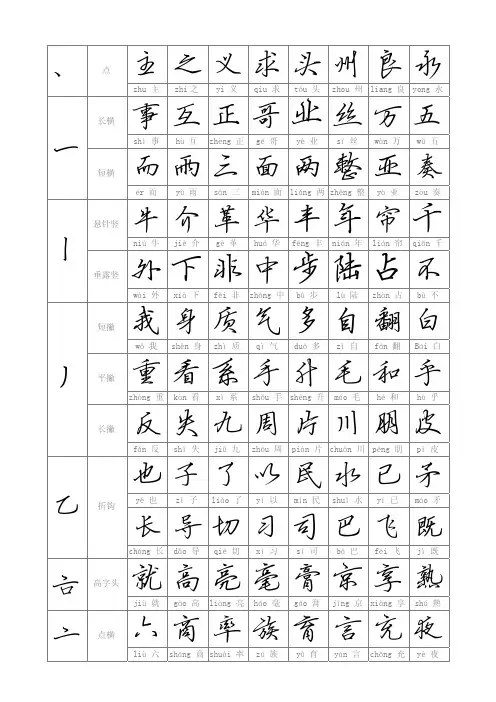 、 点 主 之 义 求 头 州 良 永
zhu 主 zhi 之 yì 义 qiu 求 tóu 头 zhou 州 liang 良 yong 永
一 长横 事 互 正 哥 业 丝 万 五
shì 事 hù 互 zhèng 正 gē 哥 yè 业 sī 丝 wàn 万 wǔ 五
短横 而 雨 三 面 两 整 亚 奏
ér 而 yǔ 雨 sān 三 miàn 面 liǎng 两 zhěng 整 yà 亚 zòu 奏
丨 悬针竖 牛 介 革 华 丰 年 帘 千
niú 牛 jiè 介 gé 革 huá 华 fēng 丰 nián 年 lián 帘 qiān 千
垂露竖 外 下 非 中 步 陆 占 不
wài 外 xià 下 fēi 非 zhōng 中 bù 步 lù 陆 zhàn 占 bù 不
丿 短撇 我 身 质 气 多 自 翻 白
wǒ 我 shēn 身 zhì 质 qì 气 duō 多 zì 自 fān 翻 Bái 白
平撇 重 看 系 手 升 毛 和 乎
zhòng 重 kàn 看 xì 系 shǒu 手 shēng 升 máo 毛 hé 和 hū 乎
长撇 反 失 九 周 片 川 朋 皮
fǎn 反 shī 失 jiǔ 九 zhōu 周 piàn 片 chuān 川 péng 朋 pí 皮
乙 折钩 也 子 了 以 民 水 已 矛
yě 也 zǐ 子 liǎo 了 yǐ 以 mín 民 shuǐ 水 yǐ 已 máo 矛
长 导 切 习 司 巴 飞 既
cháng 长 dǎo 导 qiē 切 xí 习 sī 司 bā 巴 fēi 飞 jì 既
高字头 就 高 亮 毫 膏 京 享 熟
jiù 就 gāo 高 liàng 亮 háo 毫 gāo 膏 jīng 京 xiǎng 享 shú 熟
亠 点横 六 商 率 族 育 言 充 夜
liù 六 shāng 商 shuài 率 zú 族 yù 育 yán 言 chōng 充 yè 夜